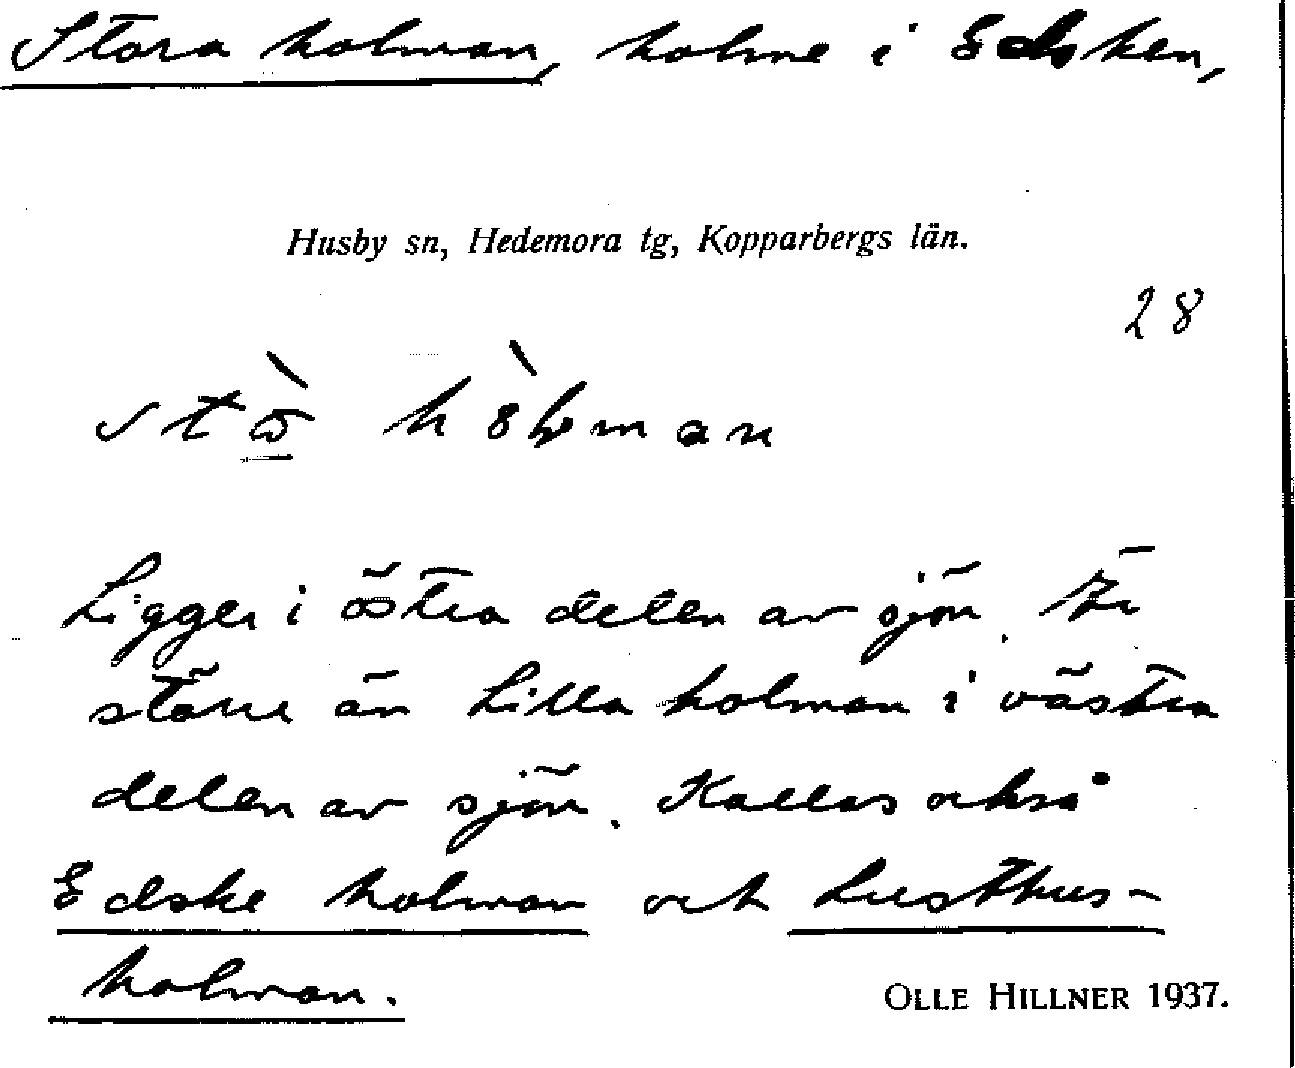 Stora holman, holme i Edsken,
Husby sn, Hedemora tg, Kopparbergs län.
28
Ligger i östra delen av sjön. Är
större än Lilla holman i västra
delen av sjön. Kallas också
Edske holman och Lusthus-
holman.
OLLE HILLNER 1937.